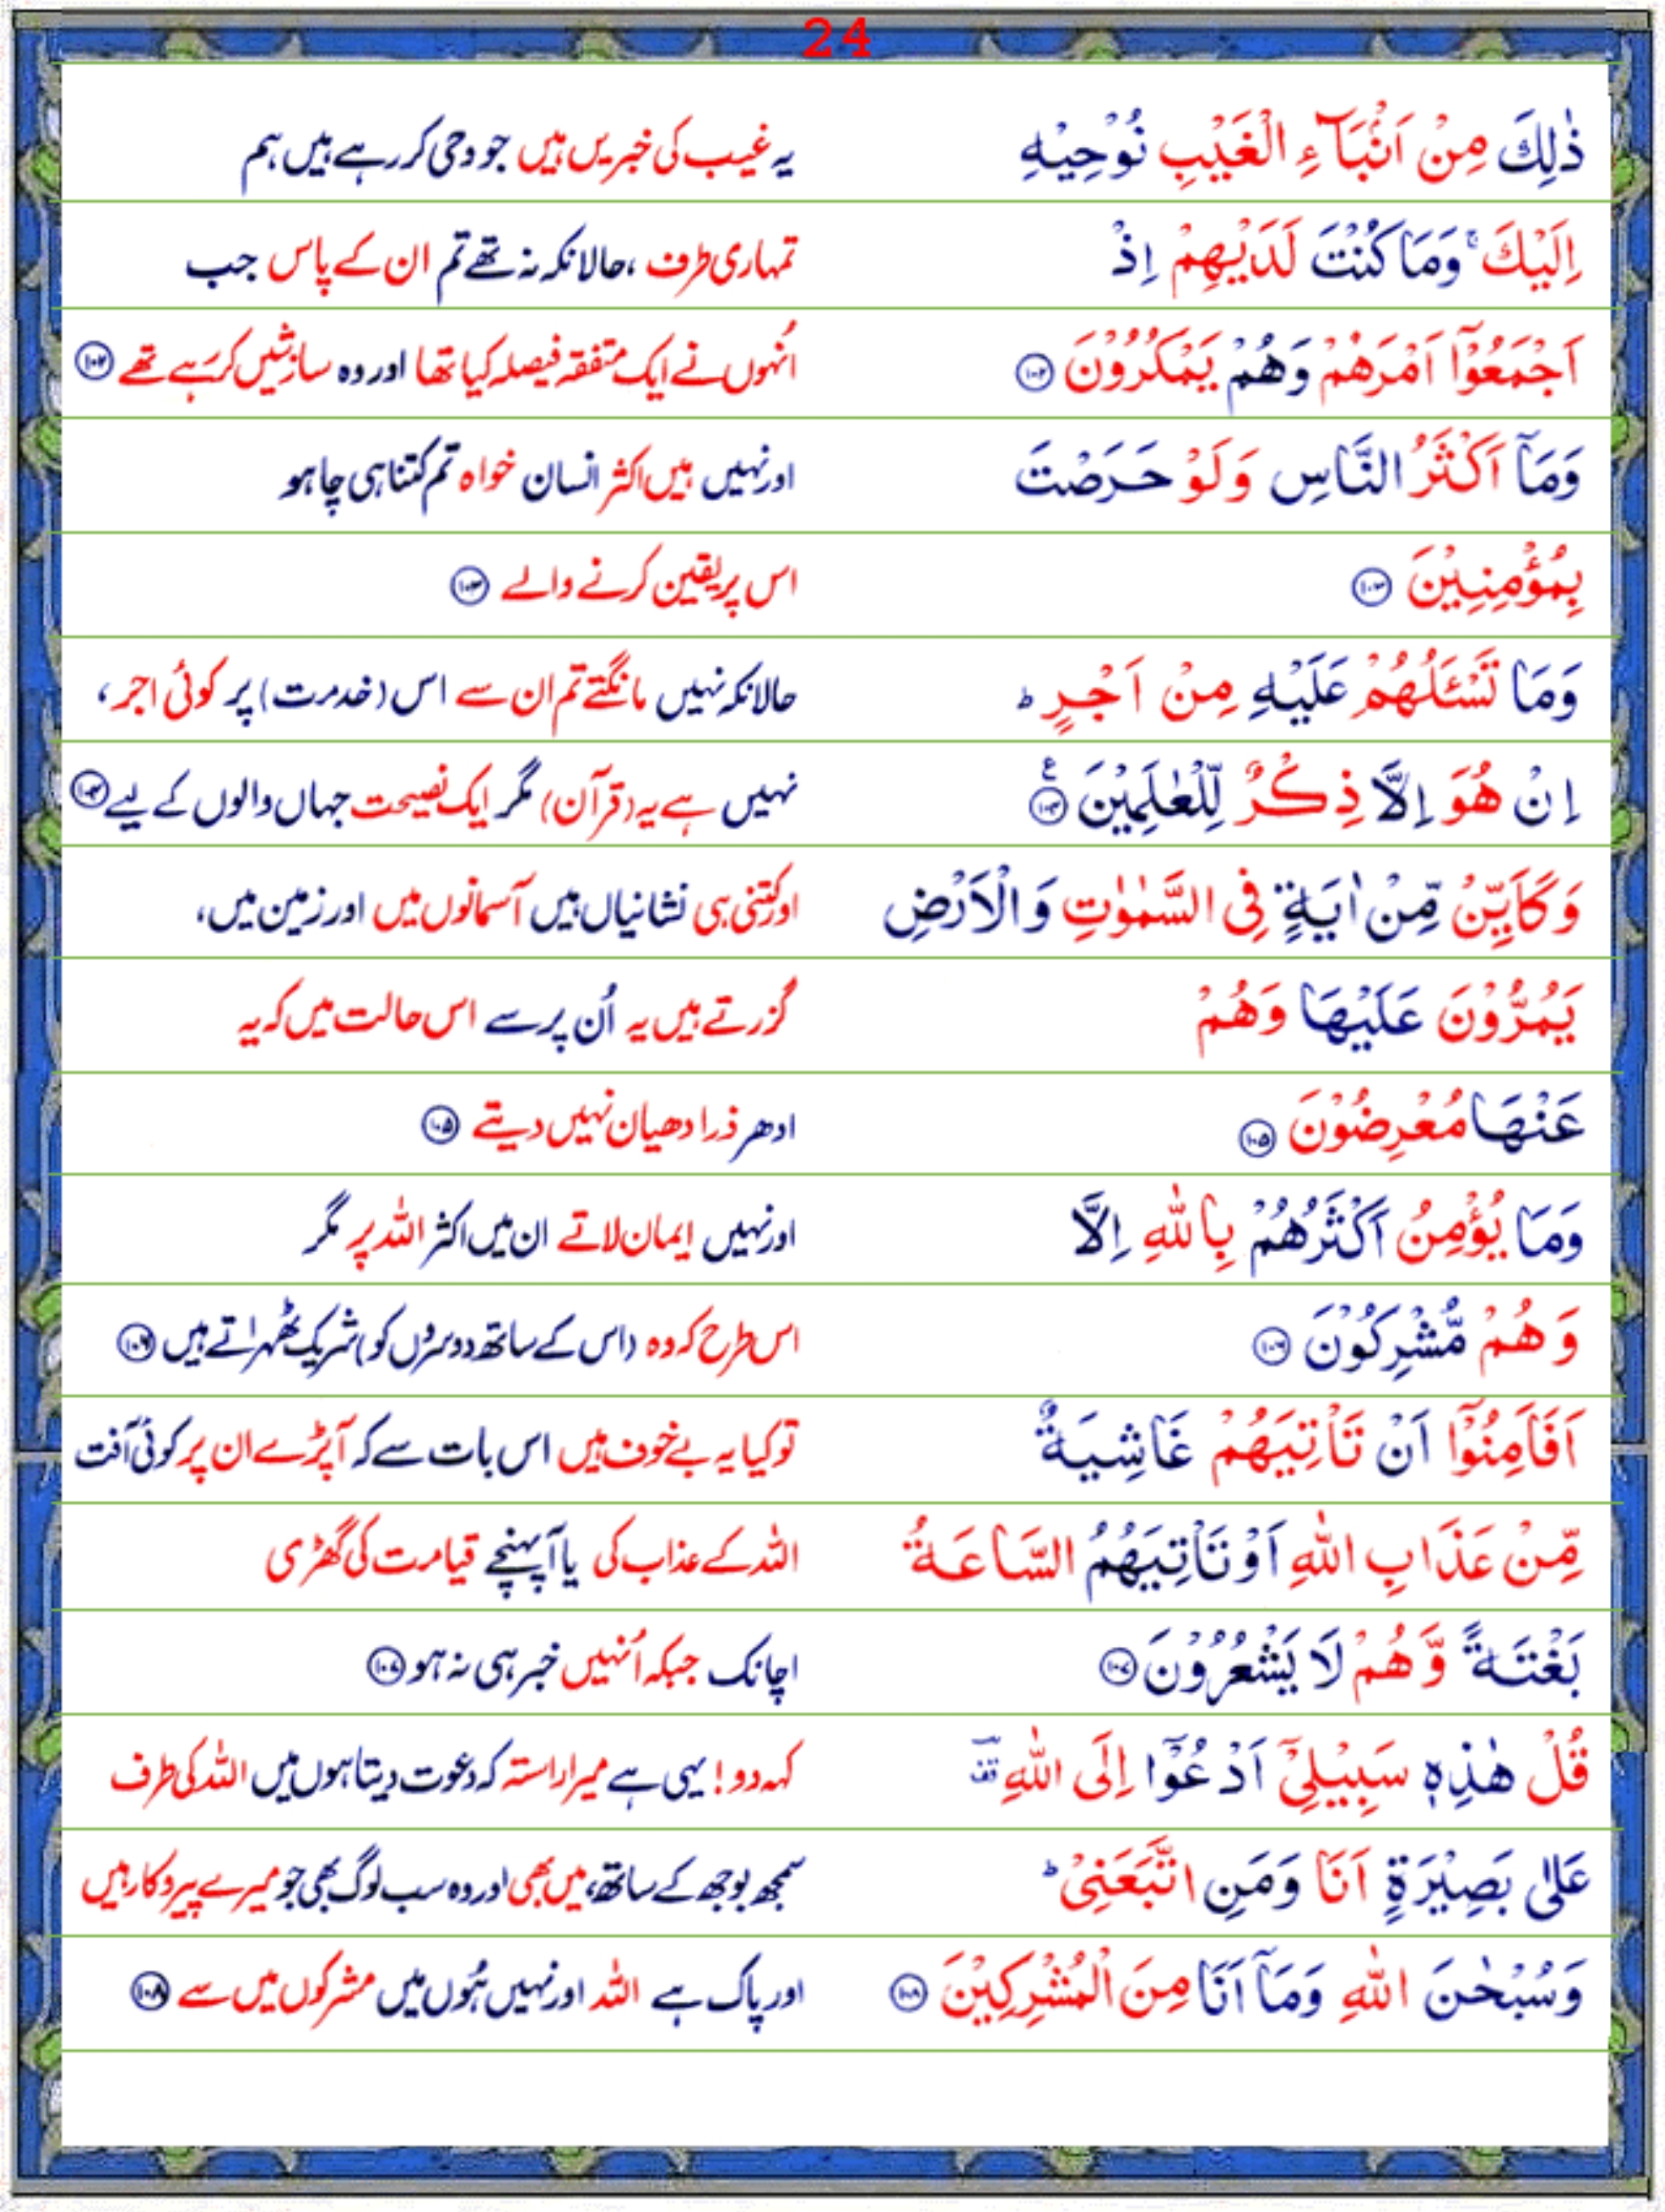 24
ذٰلِكَ مِنْ اَنْۢبَآءِ الْغَيْبِ نُوْحِيْهِ
یہ غیب کی خبریں ہیں جو وحی کر رہے ہیں ہم
اِلَيْكَ ۚ وَمَا كُنْتَ لَدَيْهِمْ اِذْ
تمہاری طرف ، حالانکہ نہ تھے تم ان کے پاس جب
اَجْمَعُوْۤا اَمْرَهُمْ وَهُمْ يَمْكُرُوْنَ ۝۱۰۲
انہوں نے ایک متفقہ فیصلہ کیا تھا اور وہ سازشیں کر رہے تھے ۝۱۰۲
وَمَاۤ اَكْثَرُ النَّاسِ وَلَوْ حَرَصْتَ
اور نہیں ہیں اکثر انسان خواہ تم کتنا ہی چاہو
بِمُؤْمِنِيْنَ ۝۱۰۳
اس پر یقین کرنے والے ۝۱۰۳
وَمَا تَسْـَٔلُهُمْ عَلَيْهِ مِنْ اَجْرٍ ؕ
حالانکہ نہیں مانگتے تم ان سے اس (خدمت) پر کوئی اجر ،
اِنْ هُوَ اِلَّا ذِكْرٌ لِّلْعٰلَمِيْنَ ۝۱۰۴ ع
نہیں ہے یہ (قرآن) مگر ایک نصیحت جہاں والوں کے لیے ۝۱۰۴
وَكَاَيِّنْ مِّنْ اٰيَةٍ فِى السَّمٰوٰتِ وَالْاَرْضِ
اور کتنی ہی نشانیاں ہیں آسمانوں میں اور زمین میں ،
يَمُرُّوْنَ عَلَيْهَا وَهُمْ
گزرتے ہیں یہ اُن پر سے اس حالت میں کہ یہ
عَنْهَا مُعْرِضُوْنَ ۝۱۰۵
ادھر ذرا دھیان نہیں دیتے ۝۱۰۵
وَمَا يُؤْمِنُ اَكْثَرُهُمْ بِاللّٰهِ اِلَّا
اور نہیں ایمان لاتے ان میں اکثر اللہ پر مگر
وَهُمْ مُّشْرِكُوْنَ ۝۱۰۶
اس طرح کہ وہ (اس کے ساتھ دوسروں کو) شریک ٹھہراتے ہیں ۝۱۰۶
اَفَاَمِنُوْۤا اَنْ تَاْتِيَهُمْ غَاشِيَةٌ
تو کیا یہ بے خوف ہیں اس بات سے کہ آپڑے ان پر کوئی آفت
مِّنْ عَذَابِ اللّٰهِ اَوْ تَاْتِيَهُمُ السَّاعَةُ
اللہ کے عذاب کی یا آپہنچے قیامت کی گھڑی
بَغْتَةً وَّهُمْ لَا يَشْعُرُوْنَ ۝۱۰۷
اچانک جبکہ اُنہیں خبر ہی نہ ہو ۝۱۰۷
قُلْ هٰذِهٖ سَبِيْلِىْۤ اَدْعُوْۤا اِلَى اللّٰهِ ؔقف
کہہ دو ! یہی ہے میرا راستہ کہ دعوت دیتا ہوں میں اللہ کی طرف
عَلٰى بَصِيْرَةٍ اَنَا وَمَنِ اتَّبَعَنِىْ ؕ
سمجھ بوجھ کے ساتھ ، میں بھی اور وہ سب لوگ بھی جو میرے پیروکار ہیں
وَسُبْحٰنَ اللّٰهِ وَمَاۤ اَنَا مِنَ الْمُشْرِكِيْنَ ۝۱۰۸
اور پاک ہے اللہ اور نہیں ہُوں میں مشرکوں میں سے ۝۱۰۸